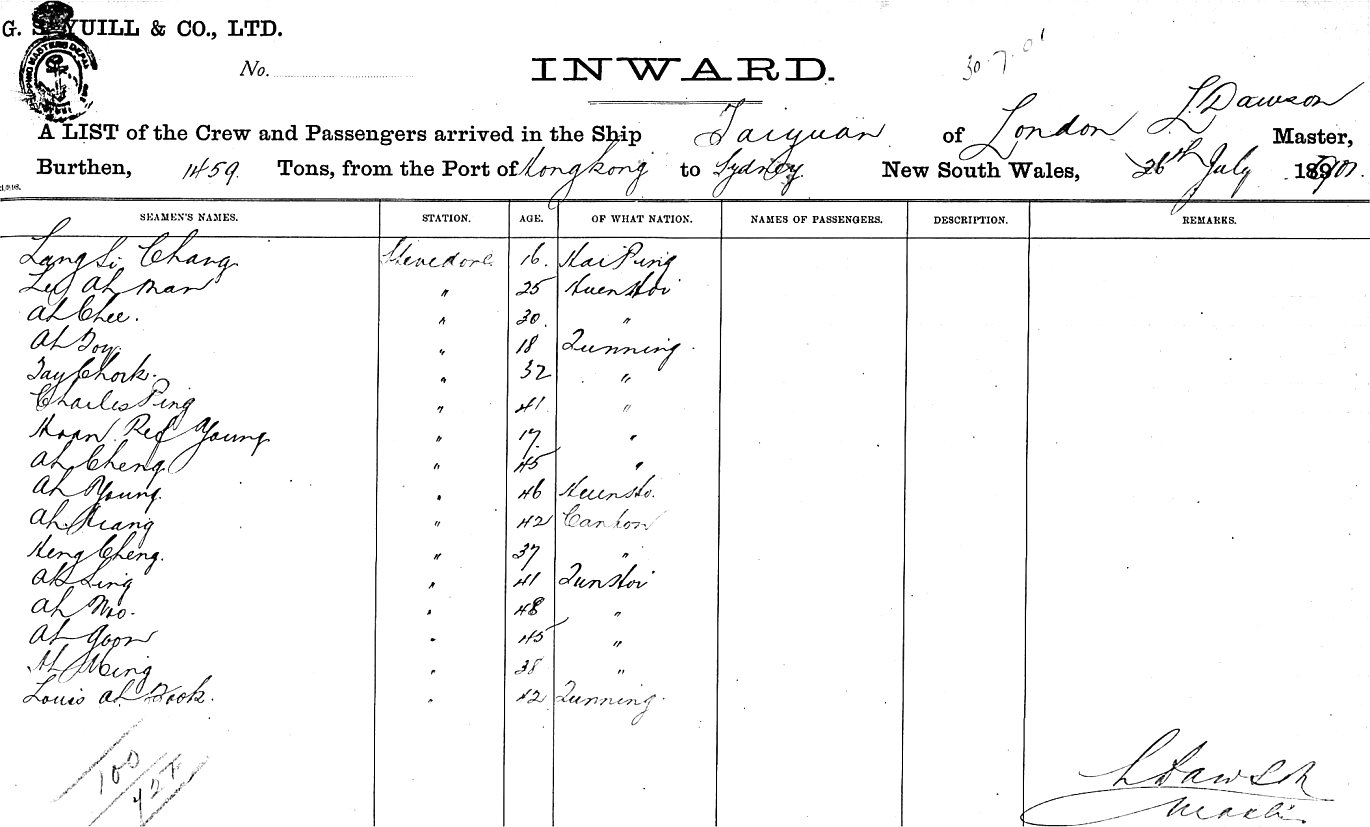 G. S. YUILL & CO., LTD.
No.
INWARD.
30.7.01
A LIST of the Crew and Passengers arrived in the Ship Taiyuan of London L Dawson Master,
Burthen, 1459 Tons, from the Port of Hongkong to Sydney New South Wales, 26th July 1901.
SEAMEN'S NAMES. STATION. AGE. OF WHAT NATION. NAMES OF PASSENGERS. DESCRIPTION. REMARKS.
Chang Stevedore 16. Hai Ping
Ah Man " 25
Ah Chee. " 30 "
Ah " 18 Sunning
" 32 "
Charles Ping " 41 "
Young " 17 "
Ah Cheng " 45 "
Ah Young " 46
Ah " 42 Canton
Cheng. " 37 "
Ah Ling " 41
Ah " 48 "
Ah Goon " 45 "
Ah " 38 "
Louis Ah " 42 Sunning
100
427
L Dawson
Master